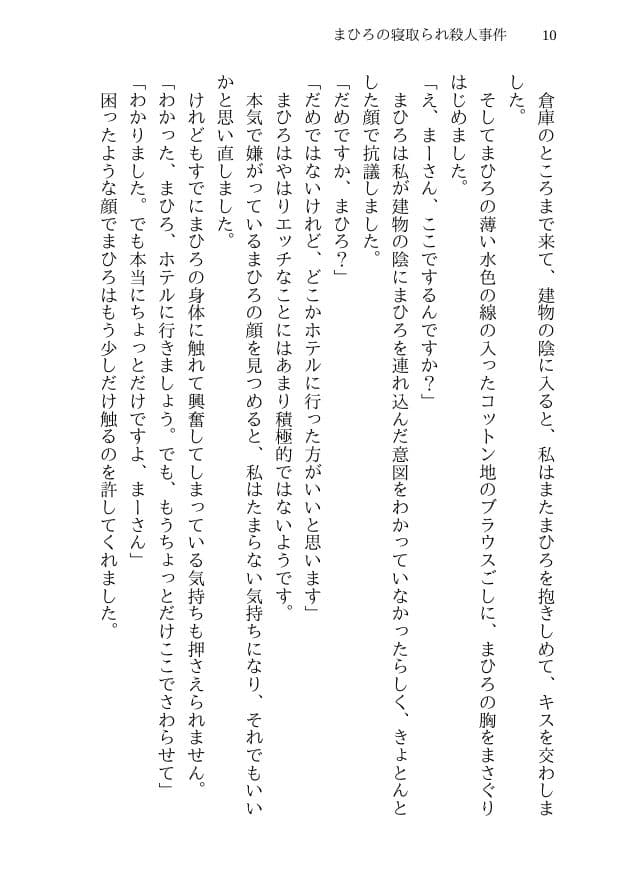 まひろの寝取られ殺人事件 10
　倉庫のところまで来て、建物の陰に入ると、私はまたまひろを抱きしめて、キスを交わしま
した。
　そしてまひろの薄い水色の線の入ったコットン地のブラウスごしに、まひろの胸をまさぐり
はじめました。
「え、まーさん、ここでするんですか？」
　まひろは私が建物の陰にまひろを連れ込んだ意図をわかっていなかったらしく、きょとんと
した顔で抗議しました。
「だめですか、まひろ？」
「だめではないけれど、どこかホテルに行った方がいいと思います」
　まひろはやはりエッチなことにはあまり積極的ではないようです。
　本気で嫌がっているまひろの顔を見つめると、私はたまらない気持ちになり、それでもいい
かと思い直しました。
　けれどもすでにまひろの身体に触れて興奮してしまっている気持ちも押さえられません。
「わかった、まひろ、ホテルに行きましょう。でも、もうちょっとだけここでさわらせて」
「わかりました。でも本当にちょっとだけですよ、まーさん」
　困ったような顔でまひろはもう少しだけ触るのを許してくれました。